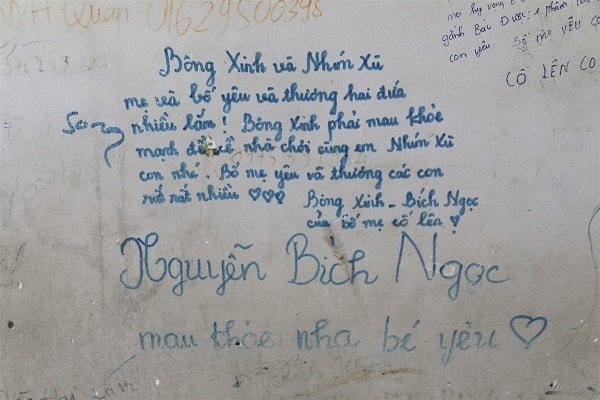 WH Quân 01629500398
gánh Bác Được 1 phần
con yêu. Số mẹ
CỐ LÊN CO
Bông Xinh và Nhím Xù
mẹ và bố yêu và thương hai đứa
nhiều lắm! Bông Xinh phải mau khỏe
mạnh để về nhà chơi cùng em Nhím Xù
con nhé. Bố mẹ yêu và thương các con
rất rất nhiều ♡♡♡
Bông Xinh - Bích Ngọc
của bố mẹ cố lên ♡
Nguyễn Bích Ngọc
mau khỏe nha bé yêu ♡